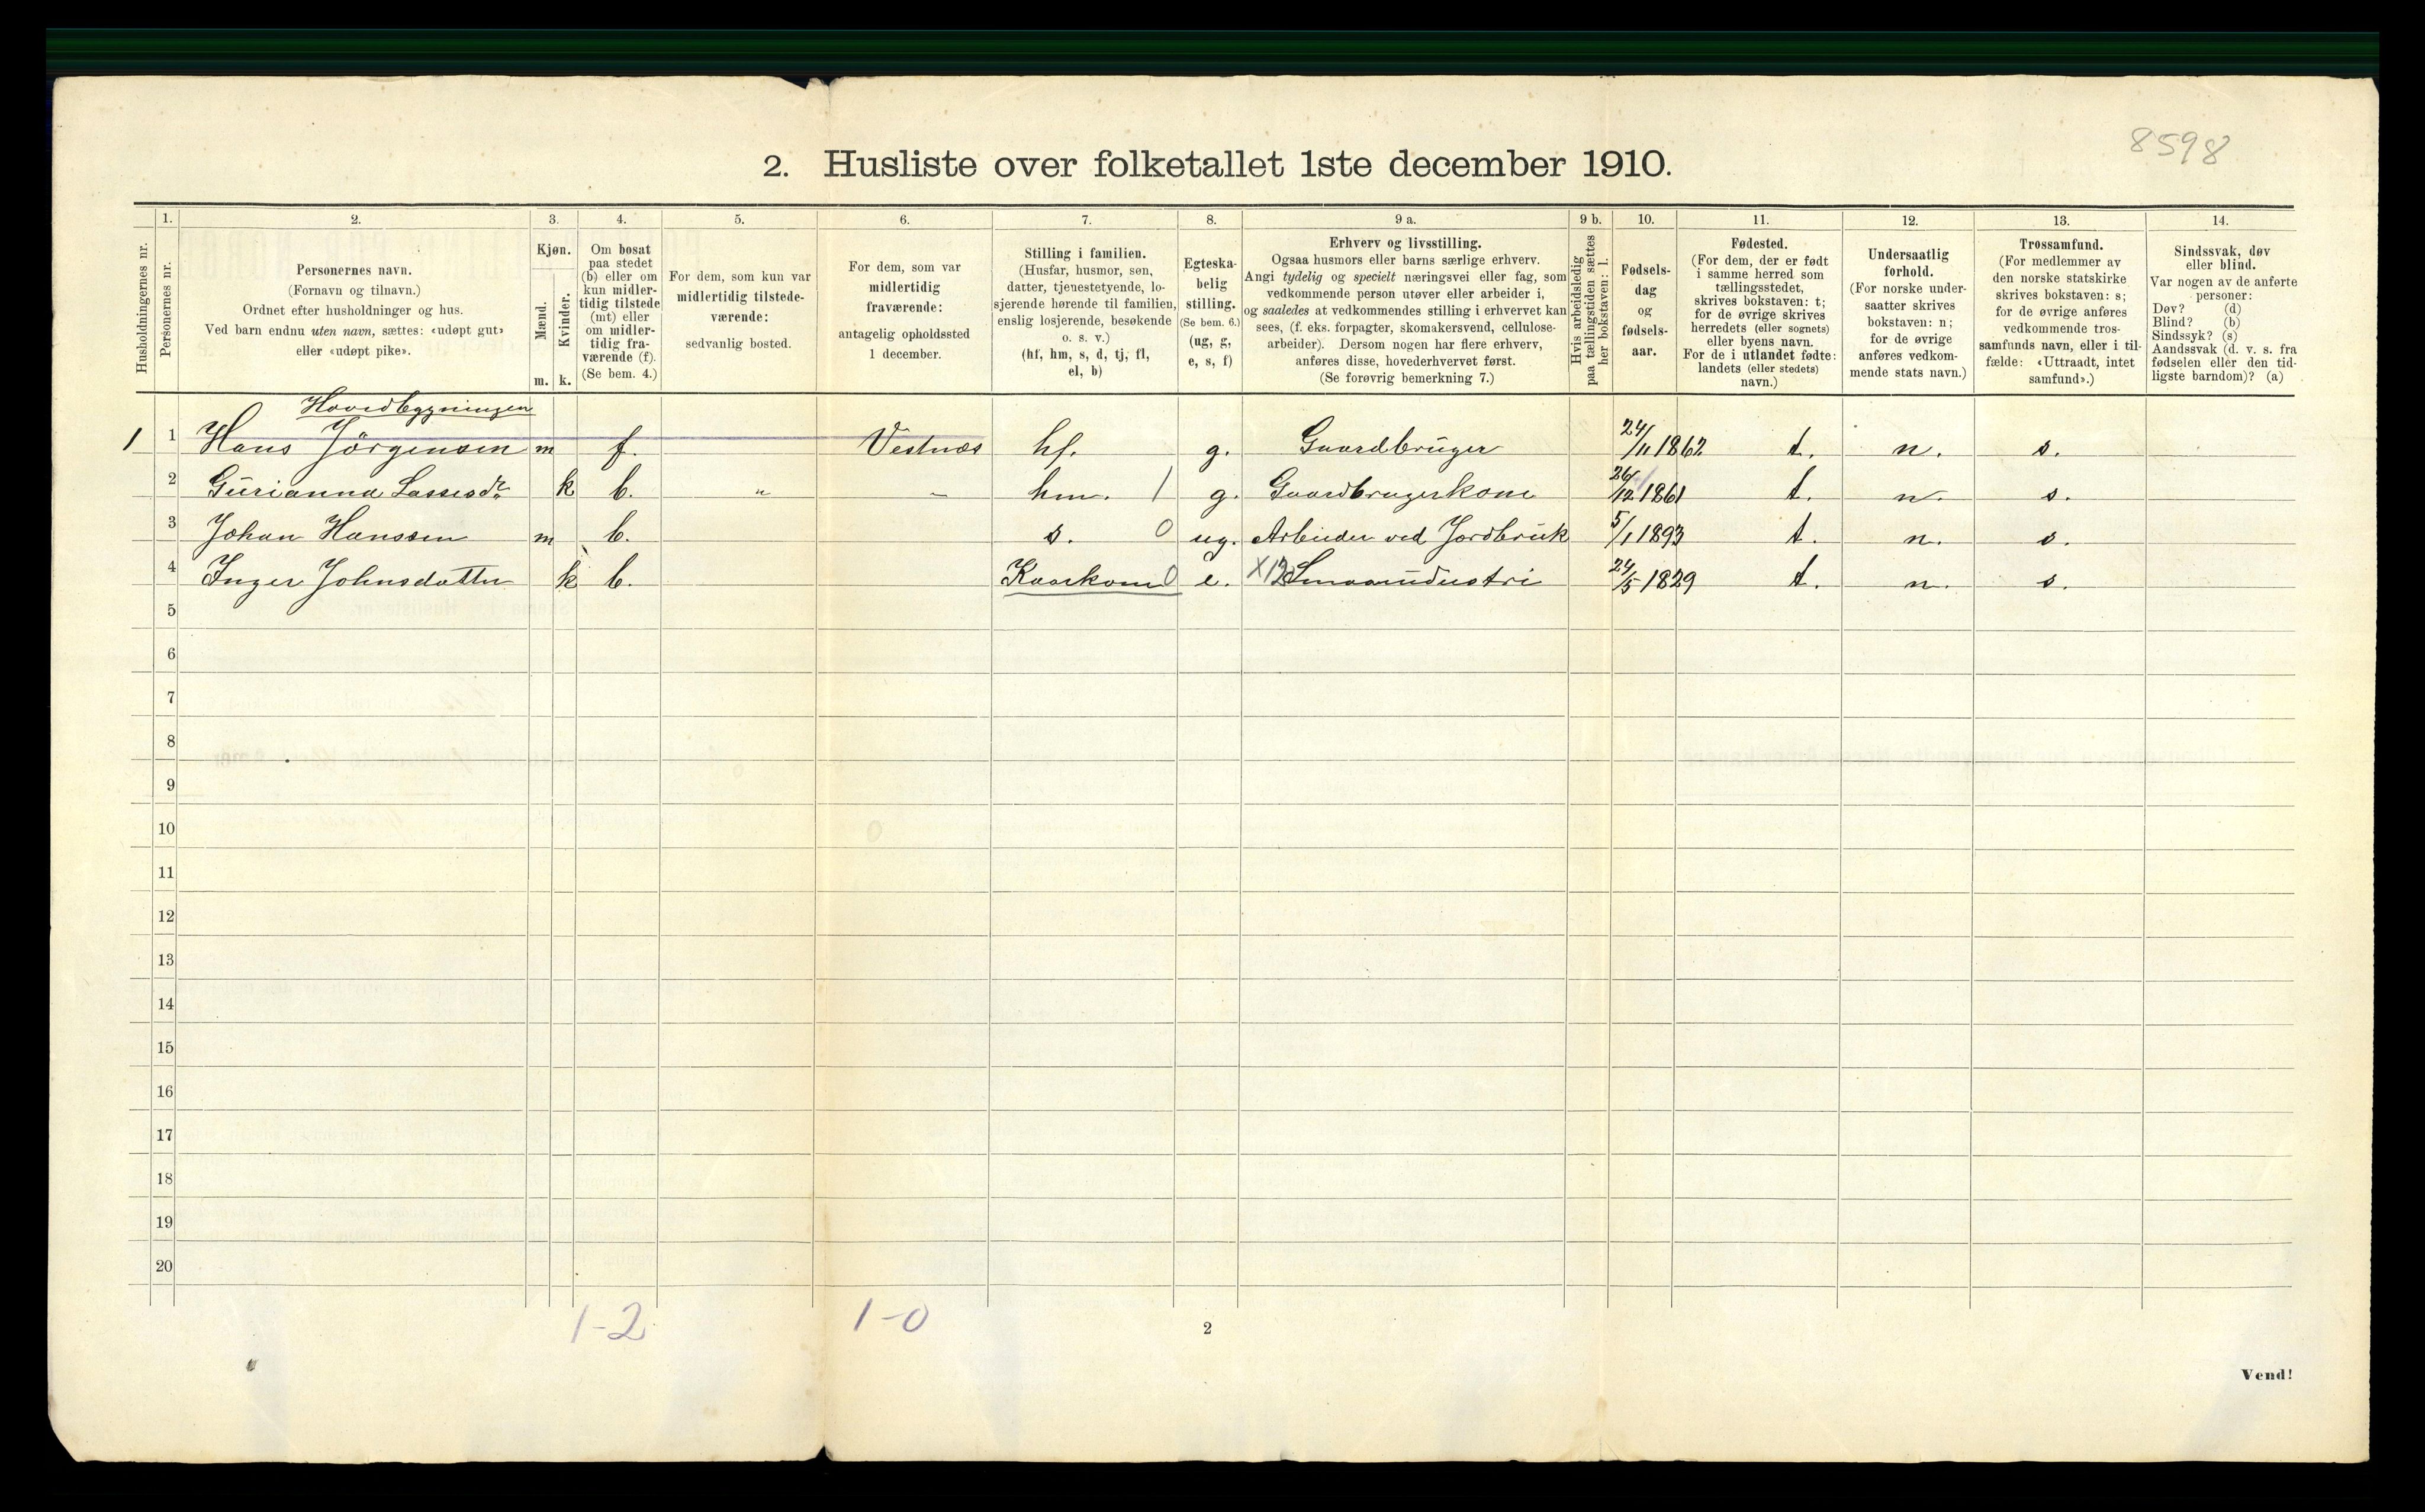 8598
2. Husliste over folketallet 1ste december 1910.
Husholdningernes nr.
1.
Personernes nr.
2.
Personernes navn.
(Fornavn og tilnavn.)
Ordnet efter husholdninger og hus.
Ved barn endnu uten navn, sættes: «udøpt gut»
eller «udøpt pike».
3.
Kjøn.
Mænd.
Kvinder.
m. k.
4.
Om bosat
paa stedet
(b) eller om
kun midler-
tidig tilstede
(mt) eller
om midler-
tidig fra-
værende (f).
(Se bem. 4.)
5.
For dem, som kun var
midlertidig tilstede-
værende:
sedvanlig bosted.
6.
For dem, som var
midlertidig
fraværende:
antagelig opholdssted
1 december.
7.
Stilling i familien.
(Husfar, husmor, søn,
datter, tjenestetyende, lo-
sjerende hørende til familien,
enslig losjerende, besøkende
o. s. v.)
(hf, hm, s, d, tj, fl,
el, b)
8.
Egteska-
belig
stilling.
(Se bem. 6.)
(ug, g,
e, s, f)
9 a.
Erhverv og livsstilling.
Ogsaa husmors eller barns særlige erhverv.
Angi tydelig og specielt næringsvei eller fag, som
vedkommende person utøver eller arbeider i,
og saaledes at vedkommendes stilling i erhvervet kan
sees, (f. eks. forpagter, skomakersvend, cellulose-
arbeider). Dersom nogen har flere erhverv,
anføres disse, hovederhvervet først.
(Se forøvrig bemerkning 7.)
9 b.
Hvis arbeidsledig
paa tællingstiden sættes
her bokstaven: l.
10.
Fødsels-
dag
og
fødsels-
aar.
11.
Fødested.
(For dem, der er født
i samme herred som
tællingsstedet,
skrives bokstaven: t;
for de øvrige skrives
herredets (eller sognets)
eller byens navn.
For de i utlandet fødte:
landets (eller stedets)
navn.)
12.
Undersaatlig
forhold.
(For norske under-
saatter skrives
bokstaven: n;
for de øvrige
anføres vedkom-
mende stats navn.)
13.
Trossamfund.
(For medlemmer av
den norske statskirke
skrives bokstaven: s;
for de øvrige anføres
vedkommende tros-
samfunds navn, eller i til-
fælde: «Uttraadt, intet
samfund».)
14.
Sindssvak, døv
eller blind.
Var nogen av de anførte
personer:
Døv? (d)
Blind? (b)
Sindssyk? (s)
Aandssvak (d. v. s. fra
fødselen eller den tid-
ligste barndom)? (a)
Hovedbygningen
1 1 Hans Jörgensen m f. Vestnæs hf. g. Gaardbruger 24/11 1862 t. n. s.
2 Gurianna Lassesdr k b. " - hm. 1 g. Gaardbrugerkone 26/12 1861 t. n. s.
3 Johan Hanssen m b. s. 0 ug. Arbeider ved Jordbruk 5/1 1893 t. n. s.
4 Inger Johnsdatter k b. Kaarkone 0 e. X12 Smaaindustri 24/5 1829 t. n. s.
5
6
7
8
9
10
11
12
13
14
15
16
17
18
19
20
1-2 1-0
2
Vend!